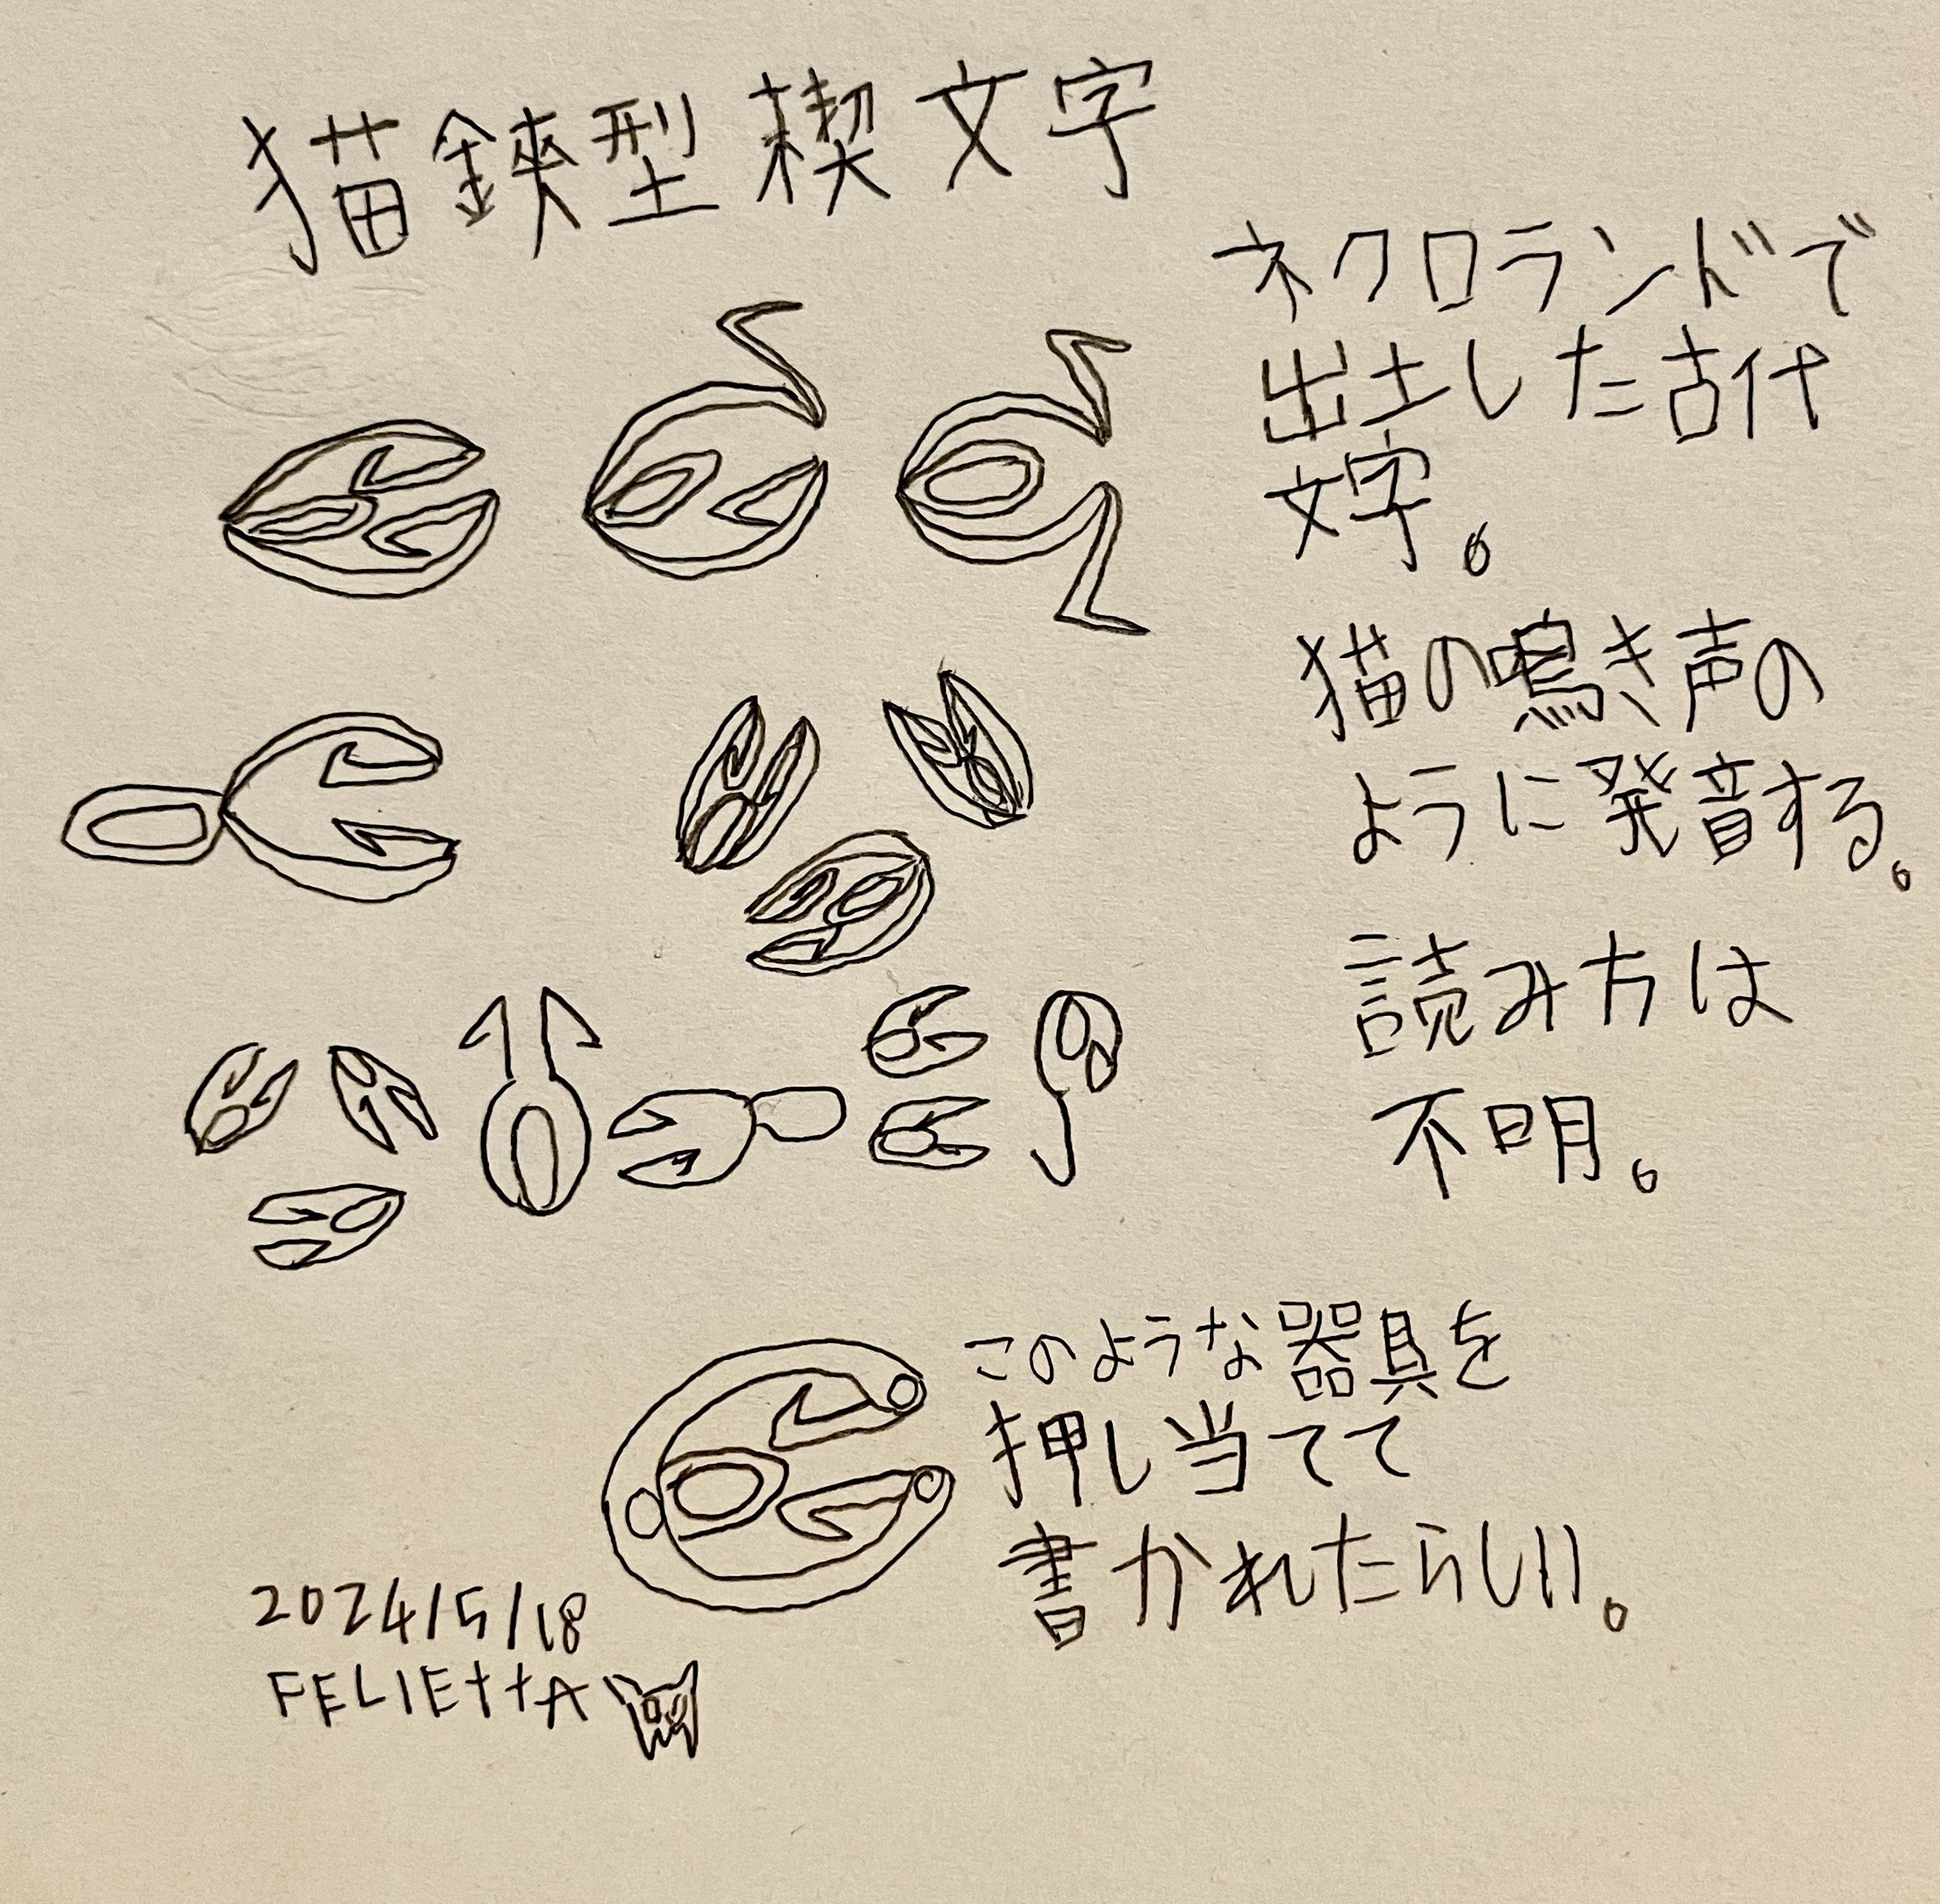 猫鋏型楔文字
ネクロランドで
出土した古代
文字。
猫の鳴き声の
ように発音する。
読み方は
不明。
このような器具を
押し当てて
書かれたらしい。
2024/5/18
FELIEttA